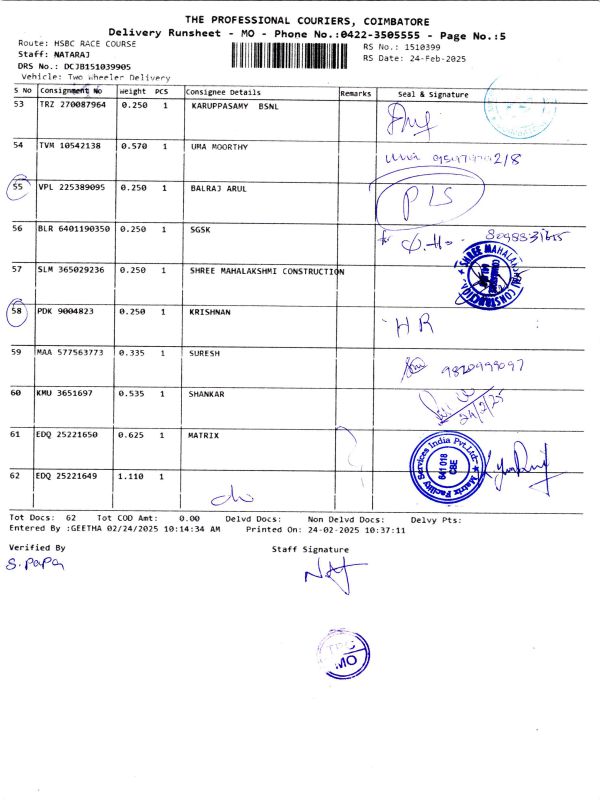 THE PROFESSIONAL COURIERS, COIMBATORE
Delivery Runsheet - MO - Phone No.:0422-3505555 - Page No.:5
Route: HSBC RACE COURSE
RS No.: 1510399
Staff: NATARAJ
RS Date: 24-Feb-2025
DRS No.: DCJB151039905
Vehicle: Two Wheeler Delivery
S No Consignment No Weight PCS Consignee Details Remarks Seal & Signature
53 TRZ 270087964 0.250 1 KARUPPASAMY BSNL
54 TVM 10542138 0.570 1 UMA MOORTHY
55 VPL 225389095 0.250 1 BALRAJ ARUL PLS
56 BLR 6401190350 0.250 1 SGSK
57 SLM 365029236 0.250 1 SHREE MAHALAKSHMI CONSTRUCTION
SHREE MAHALAKSHMI CONSTRUCTION
58 PDK 9004823 0.250 1 KRISHNAN HR
59 MAA 577563773 0.335 1 SURESH 9820999097
60 KMU 3651697 0.535 1 SHANKAR 24/2/25
61 EDQ 25221650 0.625 1 MATRIX
Matrix Facility Services India Pvt.Ltd.
641 018
CBE
62 EDQ 25221649 1.110 1
Tot Docs: 62 Tot COD Amt: 0.00 Delvd Docs: Non Delvd Docs: Delvy Pts:
Entered By :GEETHA 02/24/2025 10:14:34 AM Printed On: 24-02-2025 10:37:11
Verified By
Staff Signature
S. PAPA
TPC
MO